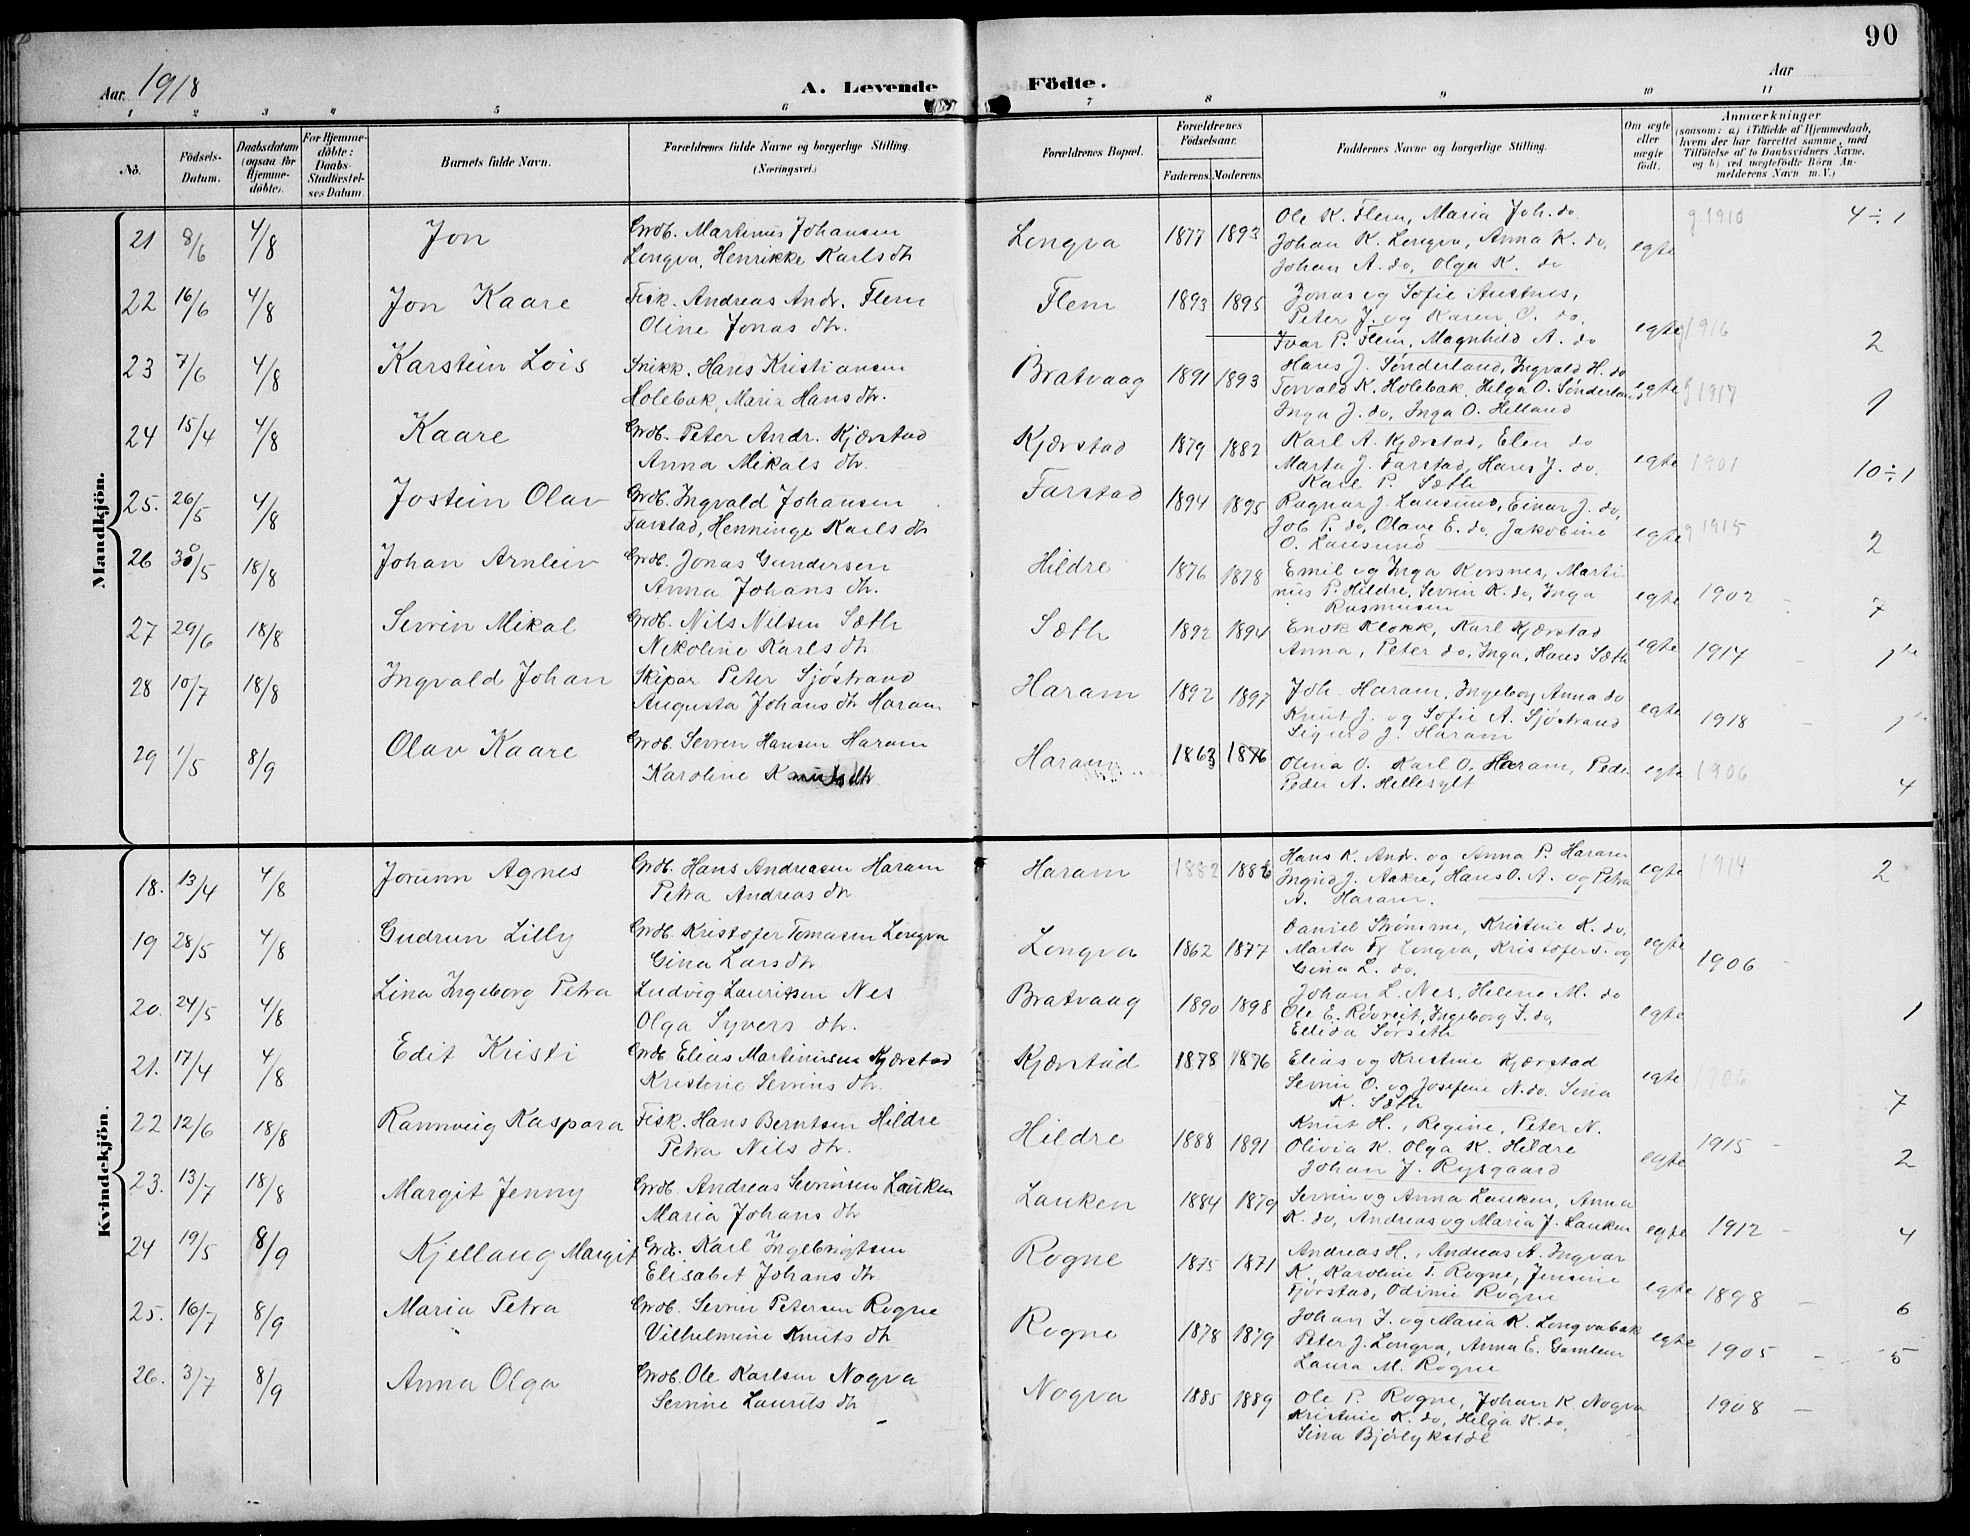 90
Aar 1918
A. Levende Födte.
Aar
1 2 3 4 5 6 7 8 9 10 11
No.
Födsels-Datum.
Daabsdatum (ogsaa for Hjemme-döbte).
For Hjemme-döbte: Daabs-Stadfæstel-ses Datum.
Barnets fulde Navn.
Forældrenes fulde Navne og borgerlige Stilling. (Næringsvei.)
Forældrenes Bopæl.
Forældrenes Födselsaar.
Faderens. Moderens.
Faddernes Navne og borgerlige Stilling.
Om ægte eller uægte född.
Anmærkninger
(saasom: a) i Tilfælde af Hjemmedaab, hvem der har forrettet samme, med Tilföielse af to Daabsvidners Navne, og b) ved uægtefödte Börn An-melderens Navn m.V.)
Mandkjön.
21 8/6 4/8 Jon Grdb. Martinus Johansen Lengva 1877 1893 Ole K. Flem, Maria Joh. do. egte g 1910 4÷1
Longva, Henrikke Karlsdtr Johan K. Longva, Anna K. do,
Johan A. do, Olga K. do
22 16/6 4/8 Jon Kaare Fisk. Andreas Andr. Flem Flem 1893 1895 Jonas og Sofie Austnes, egte g 1916 2
Oline Jonas dtr. Peter J. og Karen O. do,
Ivar P. Flem, Magnhild A. do
23 7/6 4/8 Karstein Lois Snikk. Hans Kristiansen Bratvaag 1891 1893 Hans J. Sønderland, Ingvald H. do egte g 1917 1
Holebak, Maria Hansdtr. Torvald K. Holebak, Helga O. Sønderlan
Inga J. do, Inga O. Helland
24 15/4 4/8 Kaare Grdb. Peter Andr. Kjærstad Kjærstad 1879 1882 Karl A. Kjærstad, Elen do egte 1901 10÷1
Anna Mikals dtr. Marta J. Farstad, Hans J. do,
Karl P. Sæth
25. 26/5 4/8 Jostein Olav Grdb. Ingvald Johansen Farstad 1894 1895 Ragnar J. Lausund, Einar J. do, egte g 1915 2
Farstad, Henninge Karls dtr Job P. do, Olave E. do, Jakobine
O. Lausund
26 30/5 18/8 Johan Arnleiv Grdb. Jonas Gundersen Hildre 1876 1878 Emil og Inga Rersnes, Marti- egte 1902 7
Anna Johans dtr. nus P. Hildre, Sevrin K. do, Inga
Rasmusen
27 29/6 18/8 Sevrin Mikal Grdb. Nils Nilsen Sæth Sæth 1892 1894 Enok Klokk, Karl Kjærstad egte 1914 1
Nikoline Karls dtr Anna, Peter do, Inga, Hans Sæth
28 10/7 18/8 Ingvald Johan Skipar Peter Sjöstrand Haram 1892 1897 Joh. Haram, Ingeborg Anna do egte 1918 1
Augusta Johans dtr Haram Knut J. og Sofie A. Sjöstrand
Sigurd J. Haram
29 1/5 8/9 Olav Kaare Grdb. Sevren Hansen Haram Haram 1863 1876 Olena O. Karl O. Haram, Peder egte 1906 4
Karoline Knuts dtr. Peder A. Hellesylt
Kvindekjön.
18. 13/4 4/8 Jorunn Agnes Grdb. Hans Andreasen Haram Haram 1882 1886 Hans K. Andr. og Anna P. Haram egte 1914 2
Petra Andreas dtr Ingrid J. Aakre, Hans O. A. og Petra
A. Haram.
19 28/5 4/8 Gudrun Lilly Grdb. Kristofer Tomasen Longva Longva 1862 1877 Daniel Strømme, Kristine K. do, egte 1906
Gina Larsdtr Marta Longva, Kristofer og
Gina L. do,
20. 24/5 4/8 Lina Ingeborg Petra Ludvig Lauritsen Nes Bratvaag 1890 1898 Johan L. Nes, Helene M. do egte 1
Olga Syvers dtr. Ole E. Røvreit, Ingeborg J. do,
Ellida Sørseth
21. 17/4 4/8 Edit Kristi Grdb Elias Martinusen Kjærstad Kjærstad 1878 1876 Elias og Kristine Kjærstad egte 1906 7
Kristine Sevrins dtr. Sevrin O. og Josefine N. do. Sina
K. Sæth
22 12/6 18/8 Rannveig Kaspara Fisk. Hans Berntsen Hildre Hildre 1888 1891 Knut H., Regine, Peter N. egte 1915 2
Petra Nils dtr. Olivia K. Olga K. Hildre
Johan J. Rysgaard
23. 13/7 18/8 Margit Jenny Grdb. Andreas Sevrinsen Lauken Lauken 1884 1879 Sevrin og Anna Lauken, Anna egte 1912 4
Maria Johans dtr K. do, Andreas og Maria J. Lauken
24 19/5 8/9 Kjellaug Margit Grdb. Karl Ingebrigtsen Rogne 1875 1871 Andreas H., Andreas A. Ingvar egte 1898 6
Elisabet Johans dtr K., Karoline T. Rogne, Jensine
Fjørstad, Odine Rogne
25. 16/7 8/9 Maria Petra Grdb. Sevrin Petersen Rogne Rogne 1878 1879 Johan J. og Maria K. Longvabak egte 1905 5
Vilhelmine Knuts dtr Peter J. Longva, Anna E. Gamlem
Laura M. Rogne
26. 3/7 8/9 Anna Olga Grdb. Ole Karlsen Nogva Nogva 1885 1889 Ole P. Rogne, Johan K. Nogva 1908
Sevrine Laurits dtr Kristine K. do, Helga K. do,
Sina Bjørlykstøl